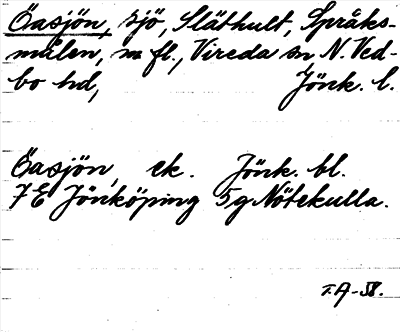 Öasjön, sjö, Släthult, Språks-
målen, m fl., Vireda sn N. Ved-
bo hd, Jönk. l.
Öasjön, ek. Jönk. bl.
7 E Jönköping 5g Nötekulla.
T.A-58.